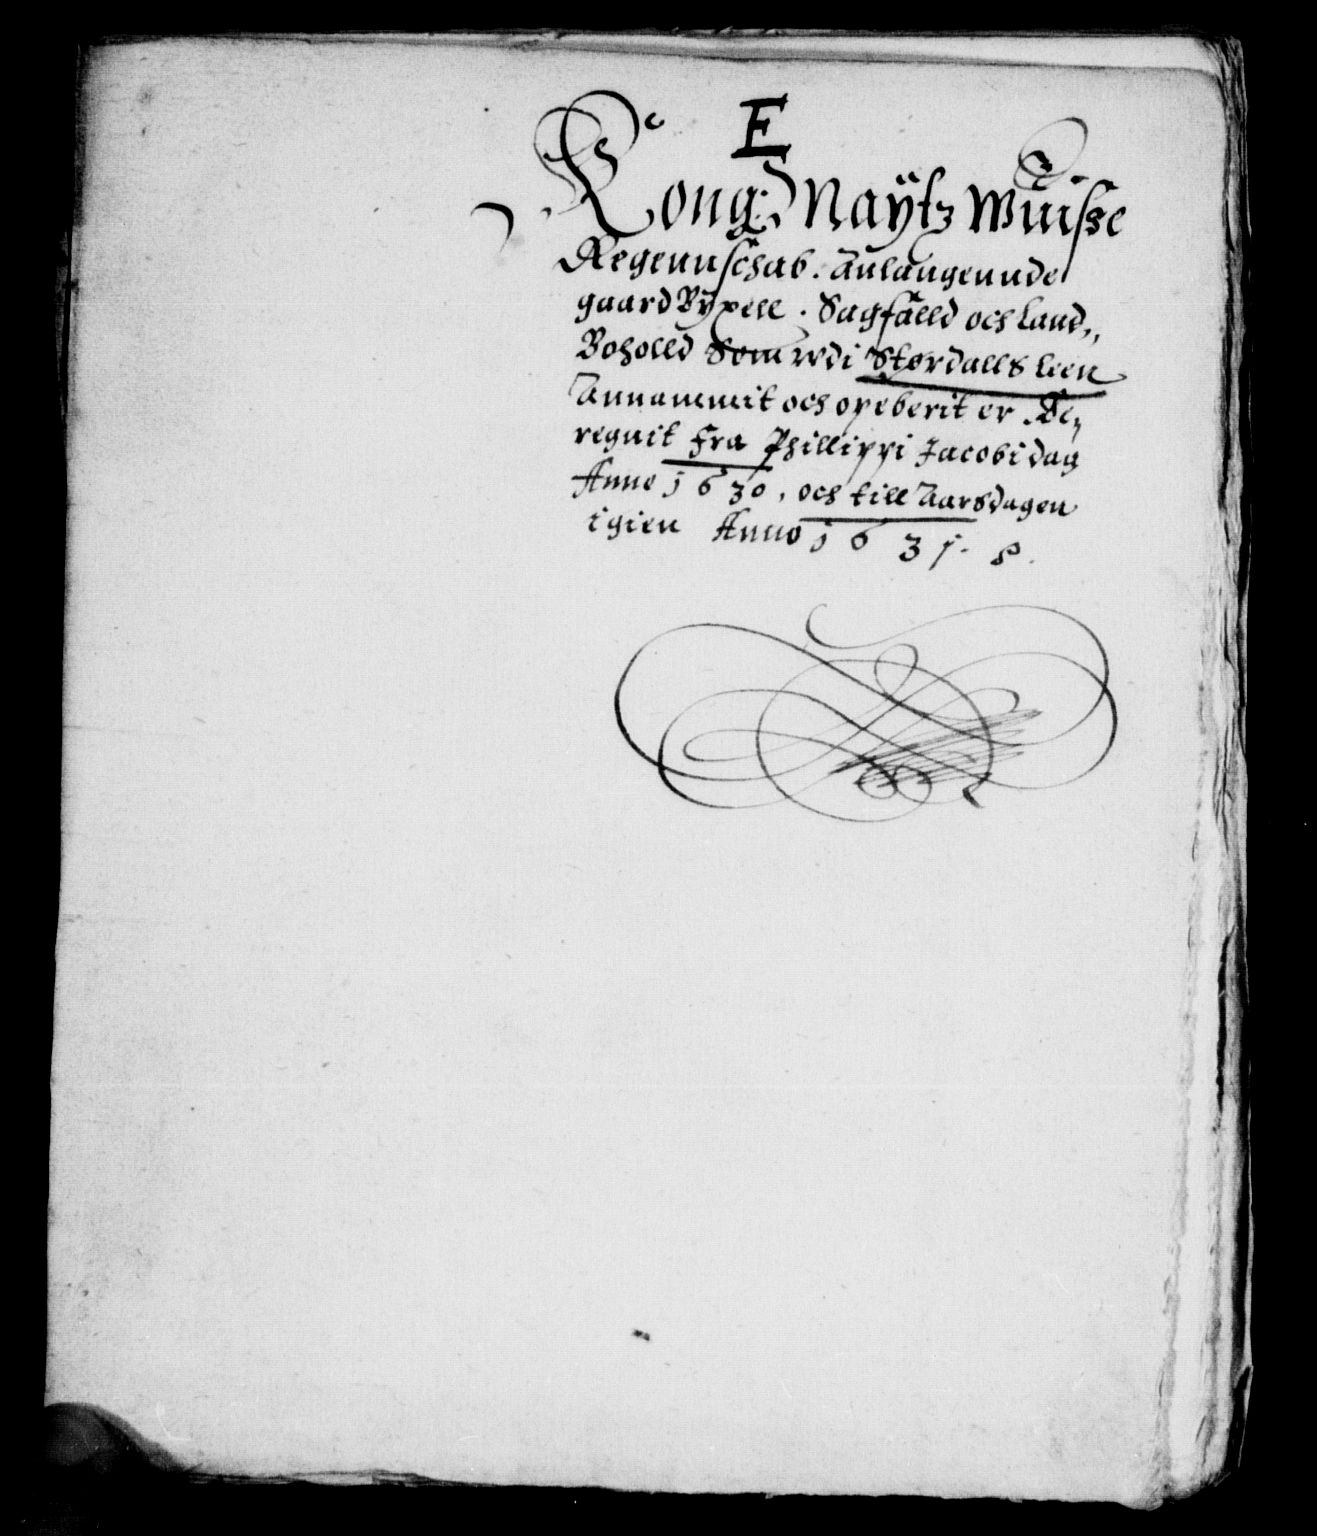 E
Kong: Maÿtz Wüisze
Regennschab. Anlangennde
gaard Bÿxell. Sagfälld och Land,,
Boholld Som vdi Størdalls leen
Annammit och opeberit er Be,
regnit Fra Phillippi Jacobi dag
Anno 1630, och till Aarsdagen
igien Anno 1631.